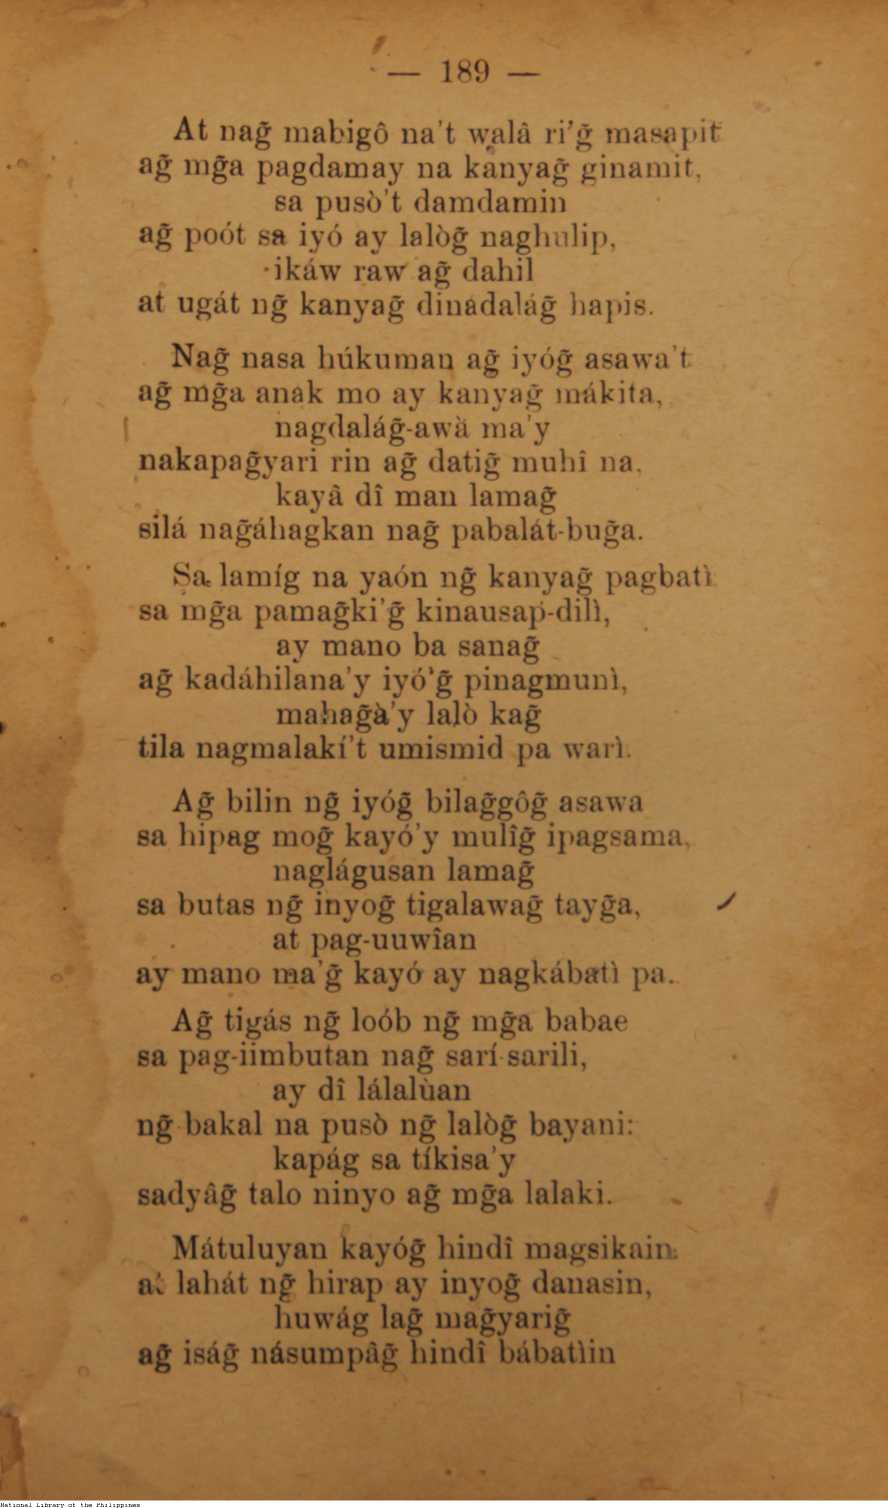 — 189 —
At nag̃ mabigô na't walâ ri'g̃ masapit
ag̃ mg̃a pagdamay na kanyag̃ ginamit,
sa pusò't damdamin
ag̃ poót sa iyó ay lalòg̃ naghulip,
ikáw raw ag̃ dahil
at ugát ng̃ kanyag̃ dinadalág̃ hapis.
Nag̃ nasa húkuman ag̃ iyóg̃ asawa't
ag̃ mg̃a anak mo ay kanyag̃ mákita,
nagdalág̃-awà ma'y
nakapag̃yari rin ag̃ datig̃ muhî na,
kayâ dî man lamag̃
silá nag̃áhagkan nag̃ pabalát-bug̃a.
Sa lamíg na yaón ng̃ kanyag̃ pagbatì
sa mg̃a pamag̃ki'g̃ kinausap-dilì,
ay mano ba sanag̃
ag̃ kadáhilana'y iyó'g̃ pinagmunì,
mahag̃à'y lalò kag̃
tila nagmalakí't umismid pa warì.
Ag̃ bilin ng̃ iyóg̃ bilag̃gôg̃ asawa
sa hipag mog̃ kayó'y mulîg̃ ipagsama,
naglágusan lamag̃
sa butas ng̃ inyog̃ tigalawag̃ tayg̃a,
at pag-uuwîan
ay mano ma'g̃ kayó ay nagkábatì pa.
Ag̃ tigás ng̃ loób ng̃ mg̃a babae
sa pag-iimbutan nag̃ sarí-sarili,
ay dî lálalùan
ng̃ bakal na pusò ng̃ lalòg̃ bayani:
kapág sa tíkisa'y
sadyâg̃ talo ninyo ag̃ mg̃a lalaki.
Mátuluyan kayóg̃ hindî magsikain
at lahát ng̃ hirap ay inyog̃ danasin,
huwág lag̃ mag̃yarig̃
ag̃ iság̃ násumpâg̃ hindî bábatìin
National Library of the Philippines